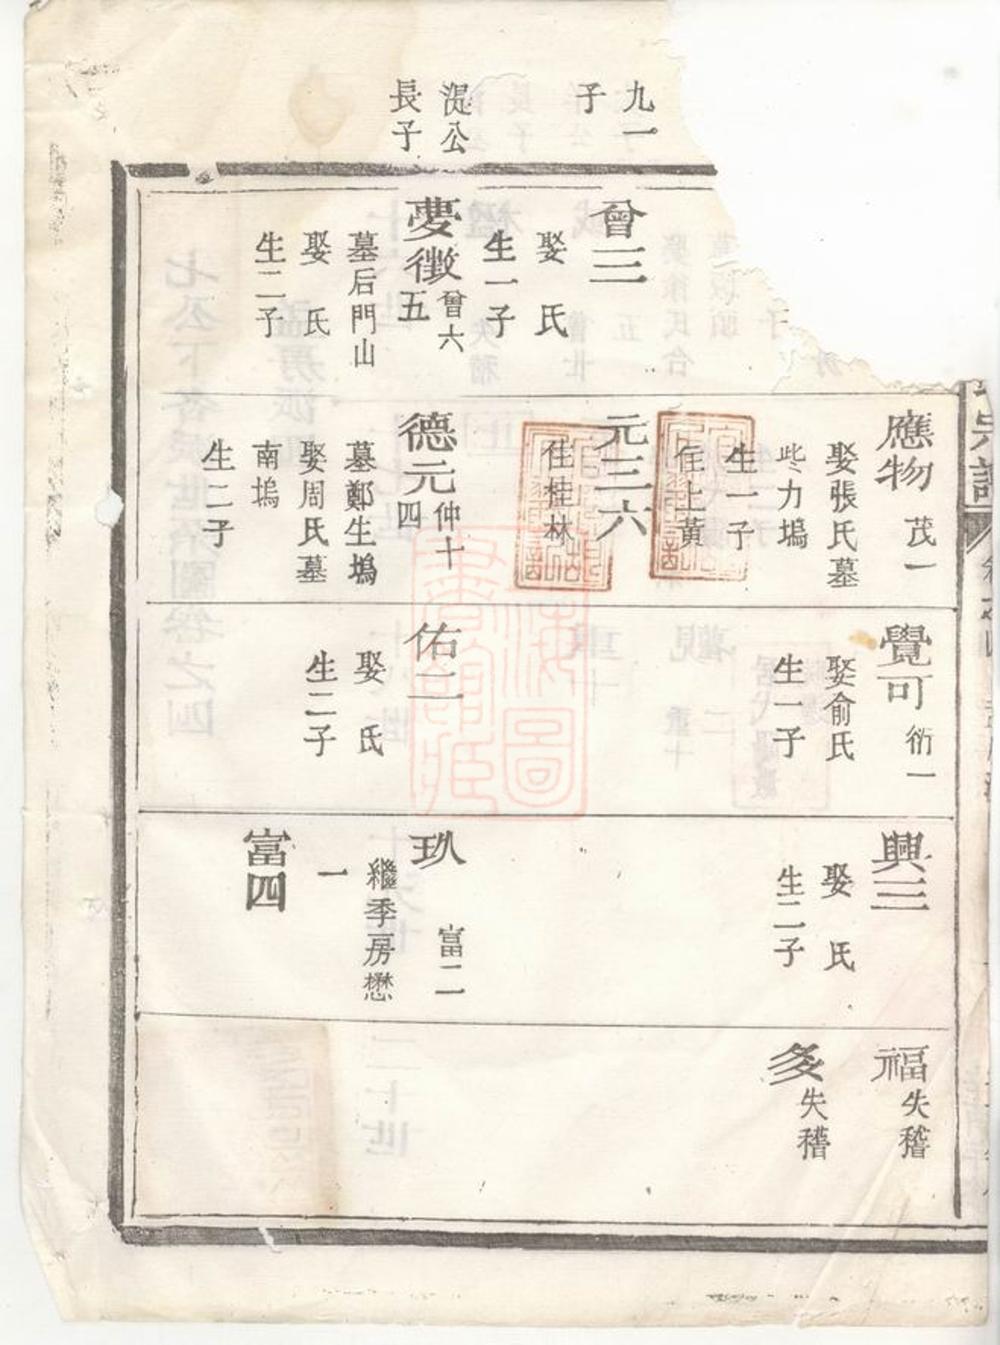 九一
子
湜公
長子
曾三
娶　氏
生一子
夢徵
曾六
五
墓后門山
娶　氏
生二子
應物
茂一
娶張氏墓
此力塢
生一子
住上黃
元三六
住桂林
德元
仲十
四
墓鄭生塢
娶周氏墓
南塢
生二子
覺可
衍一
娶俞氏
生一子
佑二
娶　氏
生二子
興三
娶　氏
生二子
玖
富二
繼季房懋
一
富四
福
失稽
失稽